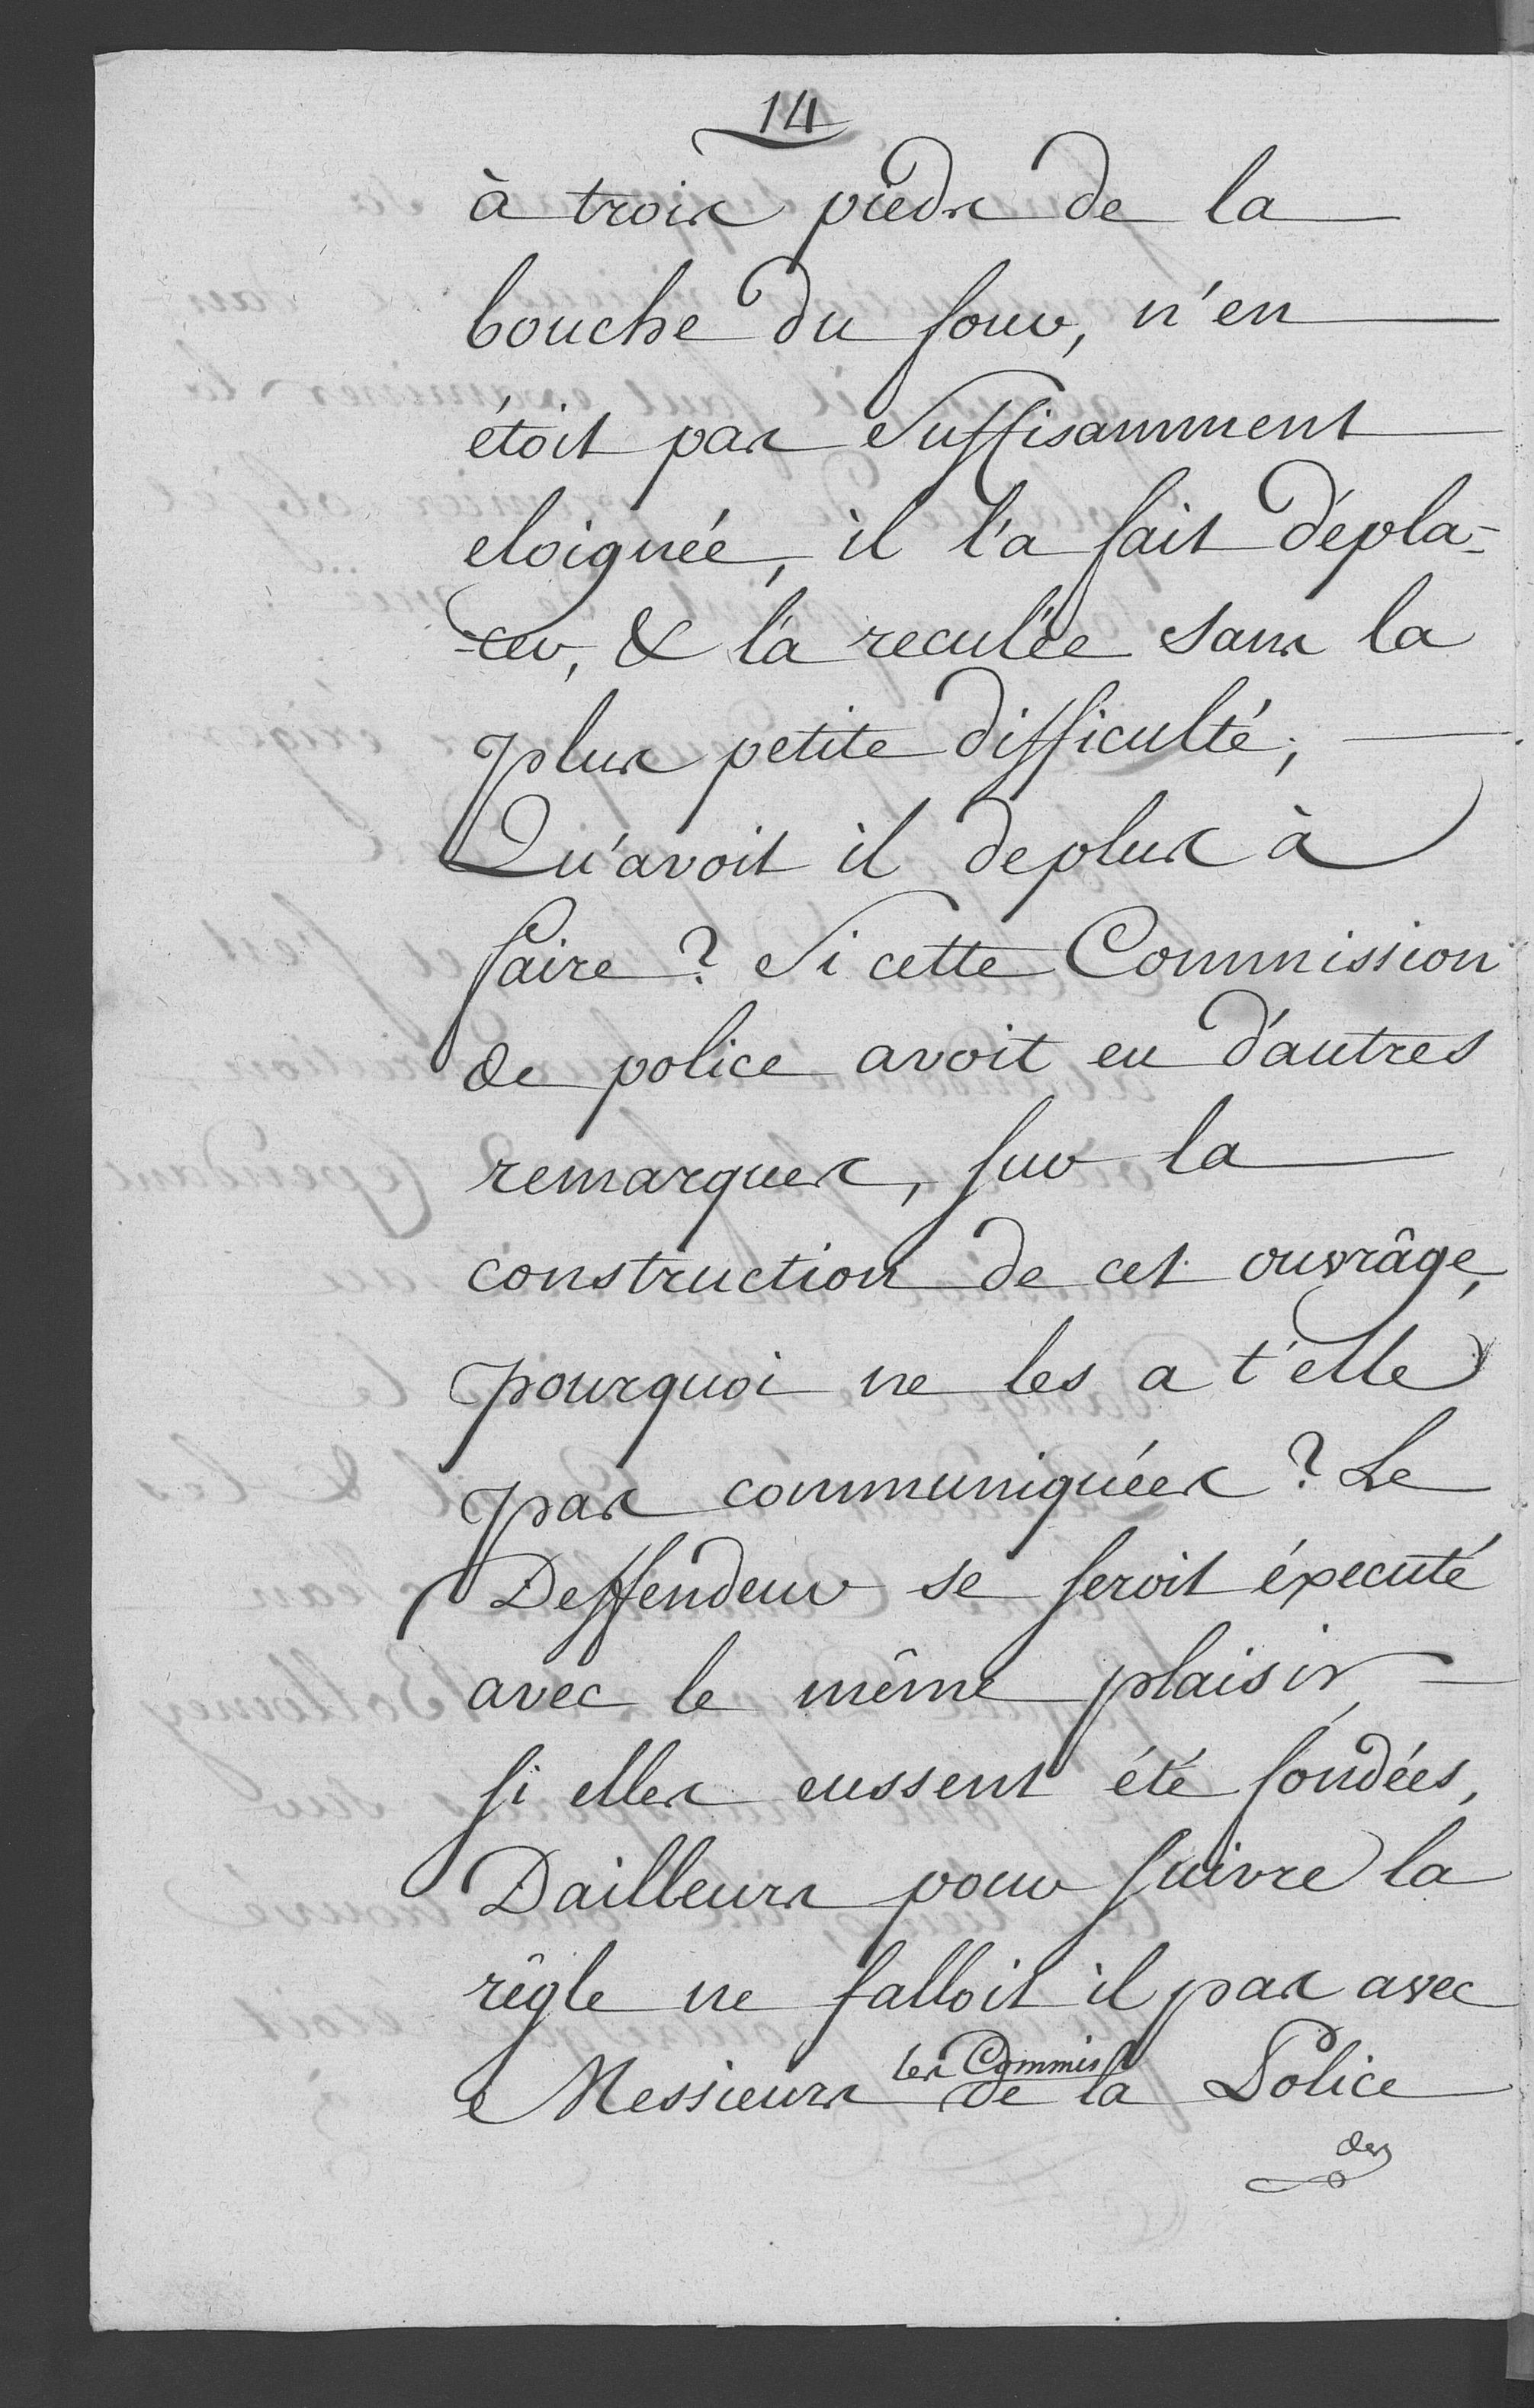 14
à trois pieds de la
bouche du four, n'en
étoit pas Suffisamment
eloignée, il l'a fait dépla=
=cer, & l'a reculée sans la
plus petite difficulté;
Qu'avoit il de plus à
faire ? Si cette Commission
de police avoit eu d'autres
remarques, sur la
construction de cet ouvrâge,
pourquoi ne les a t'elle
pas communiquées ? Le
Deffendeur se seroit éxecuté
avec le même plaisir,
si elles eussent été fondées,
Dailleurs pour suivre la
rêgle ne falloit il pas avec
les Commis
Messieurs de la Police
des